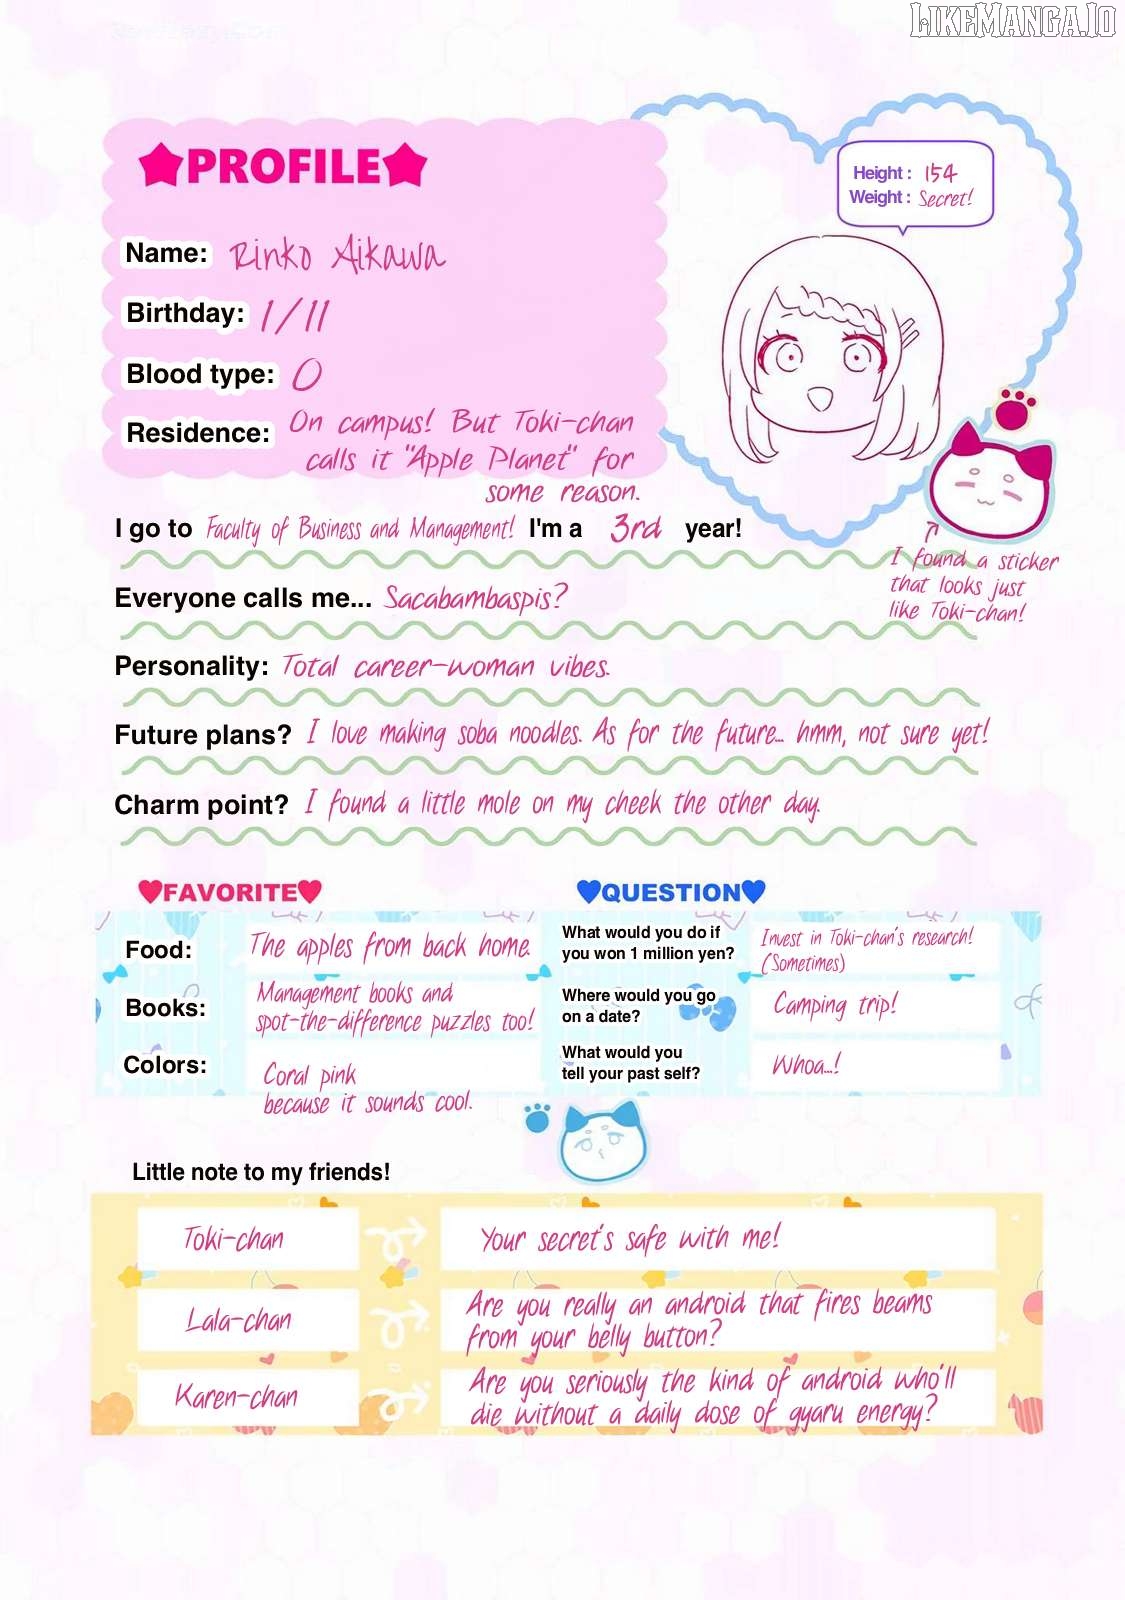 LIKEMANGA.IO
★PROFILE★
Height: 154
Weight: Secret!
Name: Rinko Aikawa
Birthday: 1/11
Blood type: O
Residence: On campus! But Toki-chan
calls it "Apple Planet" for
some reason.
I go to Faculty of Business and Management! I'm a 3rd year!
I found a sticker
that looks just
like Toki-chan!
Everyone calls me... Sacabambaspis?
Personality: Total career-woman vibes.
Future plans? I love making soba noodles. As for the future... hmm, not sure yet!
Charm point? I found a little mole on my cheek the other day.
♥FAVORITE♥
Food: The apples from back home.
Books: Management books and
spot-the-difference puzzles too!
Colors: Coral pink
because it sounds cool.
♥QUESTION♥
What would you do if
you won 1 million yen?
Invest in Toki-chan's research!
(Sometimes)
Where would you go
on a date?
Camping trip!
What would you
tell your past self?
Whoa...!
Little note to my friends!
Toki-chan
Your secret's safe with me!
Lala-chan
Are you really an android that fires beams
from your belly button?
Karen-chan
Are you seriously the kind of android who'll
die without a daily dose of gyaru energy?